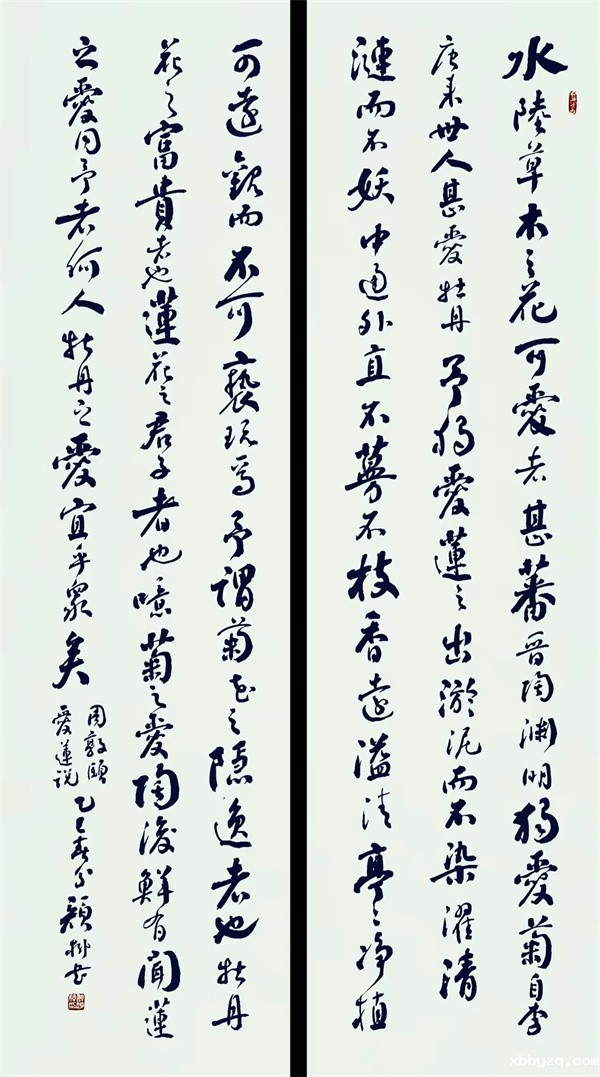 水陸草木之花可愛者甚蕃晋陶渊明独愛菊自李
唐来世人甚愛牡丹予独愛蓮之出淤泥而不染濯清
漣而不妖中通外直不蔓不枝香遠溢清亭々净植
可遠觀而不可褻玩焉予謂菊花之隱逸者也牡丹
花之富貴者也蓮花之君子者也噫菊之愛陶後鮮有聞蓮
之愛同予者何人牡丹之愛宜乎衆矣
周敦頤
愛蓮说
乙巳春分顏書
xbbyzq.com